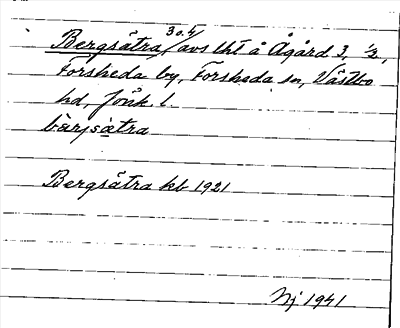 Bergsätra, 30.4/ avs lht å Ågård 3, ½,
Forsheda by, Forsheda sn, Västbo
hd, Jönk l.
bærjsætra
Bergsätra kb 1921
Nj 1941